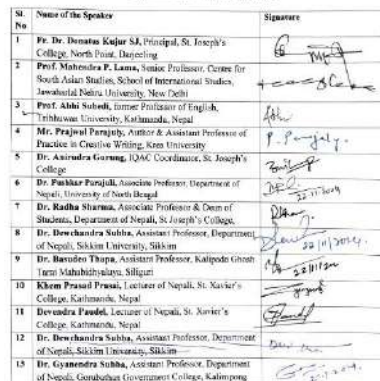 Sl. No Name of the Speaker Signature
1 Fr. Dr. Donatus Kujur SJ, Principal, St. Joseph's
College, North Point, Darjeeling
2 Prof. Mahendra P. Lama, Senior Professor, Centre for
South Asian Studies, School of International Studies,
Jawaharlal Nehru University, New Delhi
3 Prof. Abhi Subedi, former Professor of English,
Tribhuwan University, Kathmandu, Nepal
4 Mr. Prajwal Parajuly, Author & Assistant Professor of P. Parajuly.
Practice in Creative Writing, Krea University
5 Dr. Anirudra Gurung, IQAC Coordinator, St. Joseph's
College
6 Dr. Pushkar Parajuli, Associate Professor, Department of
Nepali, University of North Bengal 22.11.2024
7 Dr. Radha Sharma, Associate Professor & Dean of
Students, Department of Nepali, St Joseph's College,
8 Dr. Dewchandra Subba, Assistant Professor, Department
of Nepali, Sikkim University, Sikkim 22/11/2024
9 Dr. Basudeo Thapa, Assistant Professor, Kalipada Ghosh
Tarai Mahabidhyalaya, Siliguri
10 Khem Prasad Prasai, Lecturer of Nepali, St. Xavier's
College, Kathmandu, Nepal
11 Devendra Paudel, Lecturer of Nepali, St. Xavier's
College, Kathmandu, Nepal
12 Dr. Dewchandra Subba, Assistant Professor, Department
of Nepali, Sikkim University, Sikkim
13 Dr. Gyanendra Subba, Assistant Professor, Department
of Nepali, Gorubathan Government College, Kalimpong